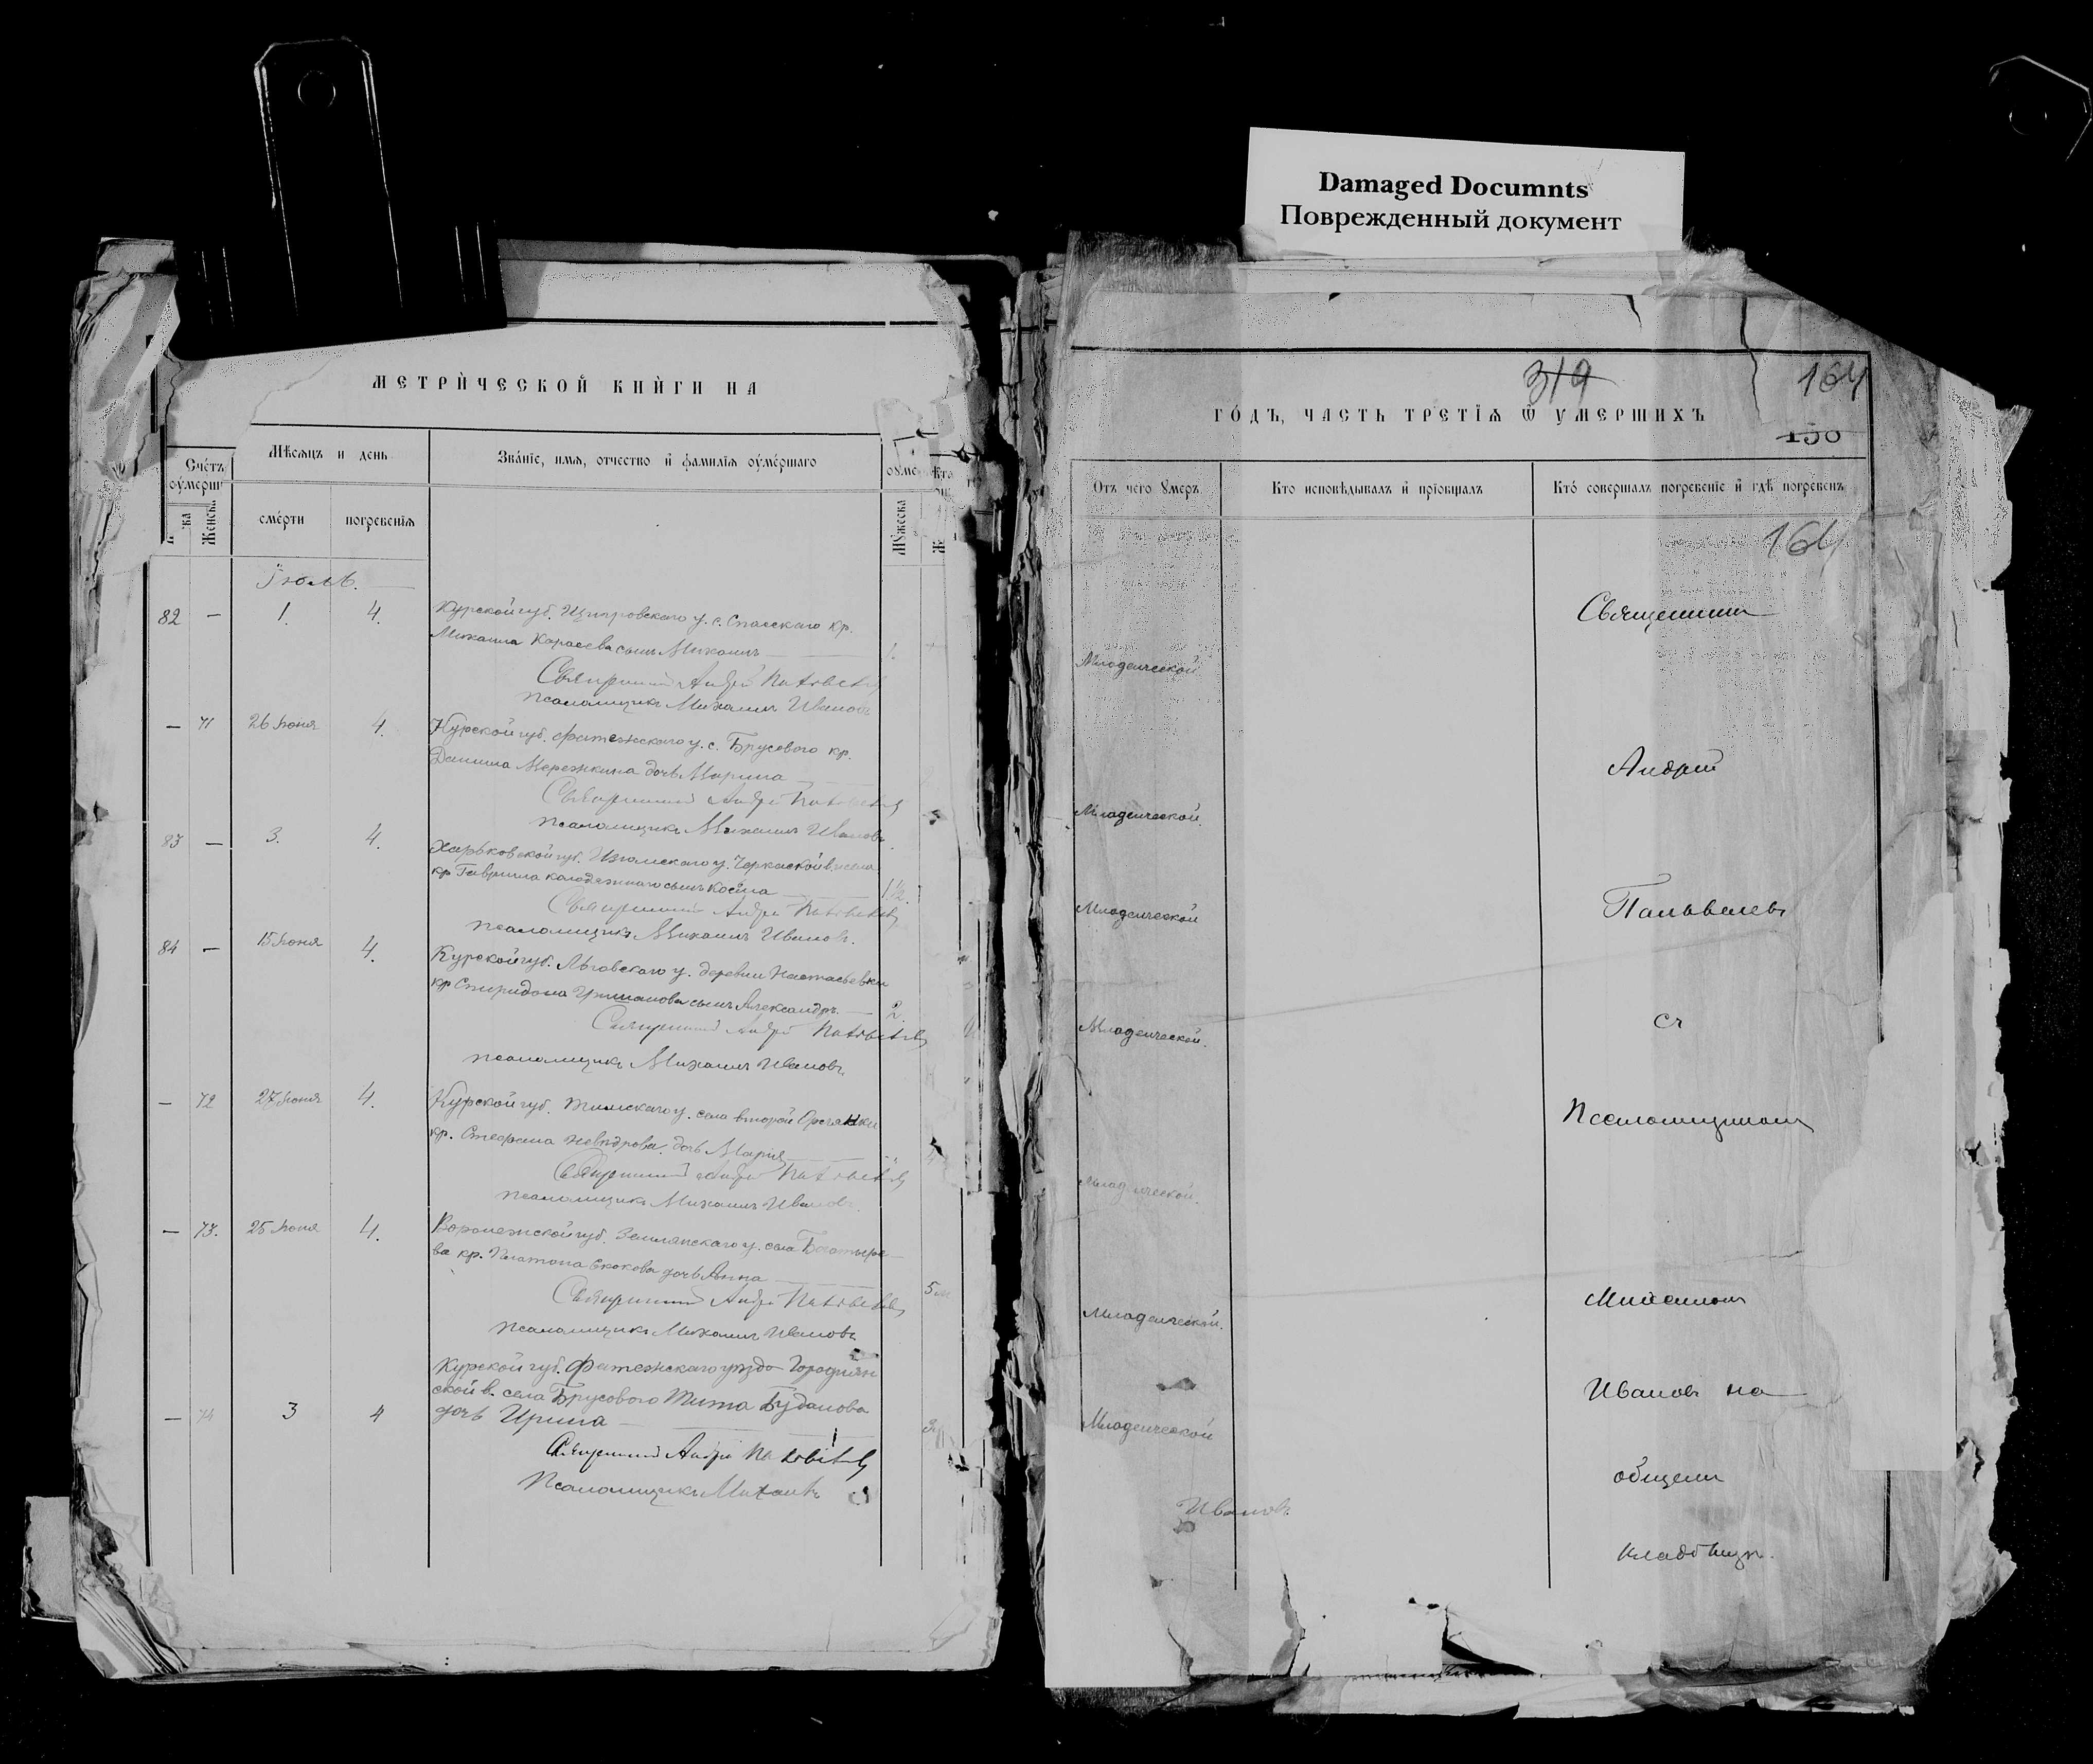 Damaged Documnts
Поврежденный документ
МЕТРИЧЕСКОЙ КНИГИ НА
Счетъ умерш
Мѣсяцъ и день
Званіе, имя, отчество и фамилія оумершаго
оуме
ка
Женска
смерти
погребенія
Мужеска
Ж
Іюль.
82 — 1. 4. Курской губ. Щигровскаго у. с. Спасскаго кр.
Михаила Карасева сынъ Михаилъ — 1.
Священникъ Андрей
Псаломщикъ Михаилъ Ивановъ
— 71 26 Іюня 4. Курской губ. Фатежскаго у. с. Брусового кр.
Даниила Мережкина дочь Марина —
Священникъ Андрей
Псаломщикъ Михаилъ Ивановъ
83 — 3. 4. Харьковской губ. Изюмскаго у. Черкаской в. и села
кр. Гавриила Колодежнаго сынъ Косма — 1½.
Священникъ Андрей
Псаломщикъ Михаилъ Ивановъ.
84 — 15 Іюня 4. Курской губ. Льговскаго у. деревни Настасьевки
кр. Спиридона сынъ Александръ. — 2.
Священникъ Андрей
Псаломщикъ Михаилъ Ивановъ
— 72 27 Іюня 4. Курской губ. Тимскаго у. села второй
кр. Стефана дочь Марія —
Священникъ Андрей
Псаломщикъ Михаилъ Ивановъ
— 73. 25 Іюня 4. Воронежской губ. Землянскаго у. села Богатыре-
ва кр. Платона Скокова дочь Анна — 5 м
Священникъ Андрей
Псаломщикъ Михаилъ Ивановъ
Курской губ. Фатежскаго уѣзда
ской в. села Брусового Тита Буданова
— 74 3 4 дочь Ирина —
Священникъ Андрей
Псаломщикъ Михаилъ
319
164
ГОДЪ, ЧАСТЬ ТРЕТІЯ Ѿ УМЕРШИХЪ
150
Отъ чего умеръ
Кто исповѣдывалъ и пріобщалъ
Кто совершалъ погребеніе и гдѣ погребенъ
164
Священникъ
Младенческой
Андрей
Младенческой
Младенческой
съ
Младенческой.
Псаломщикомъ
Младенческой.
Михаиломъ
Младенческой.
Ивановъ на
Младенческой
общемъ
Ивановъ.
кладбищѣ.